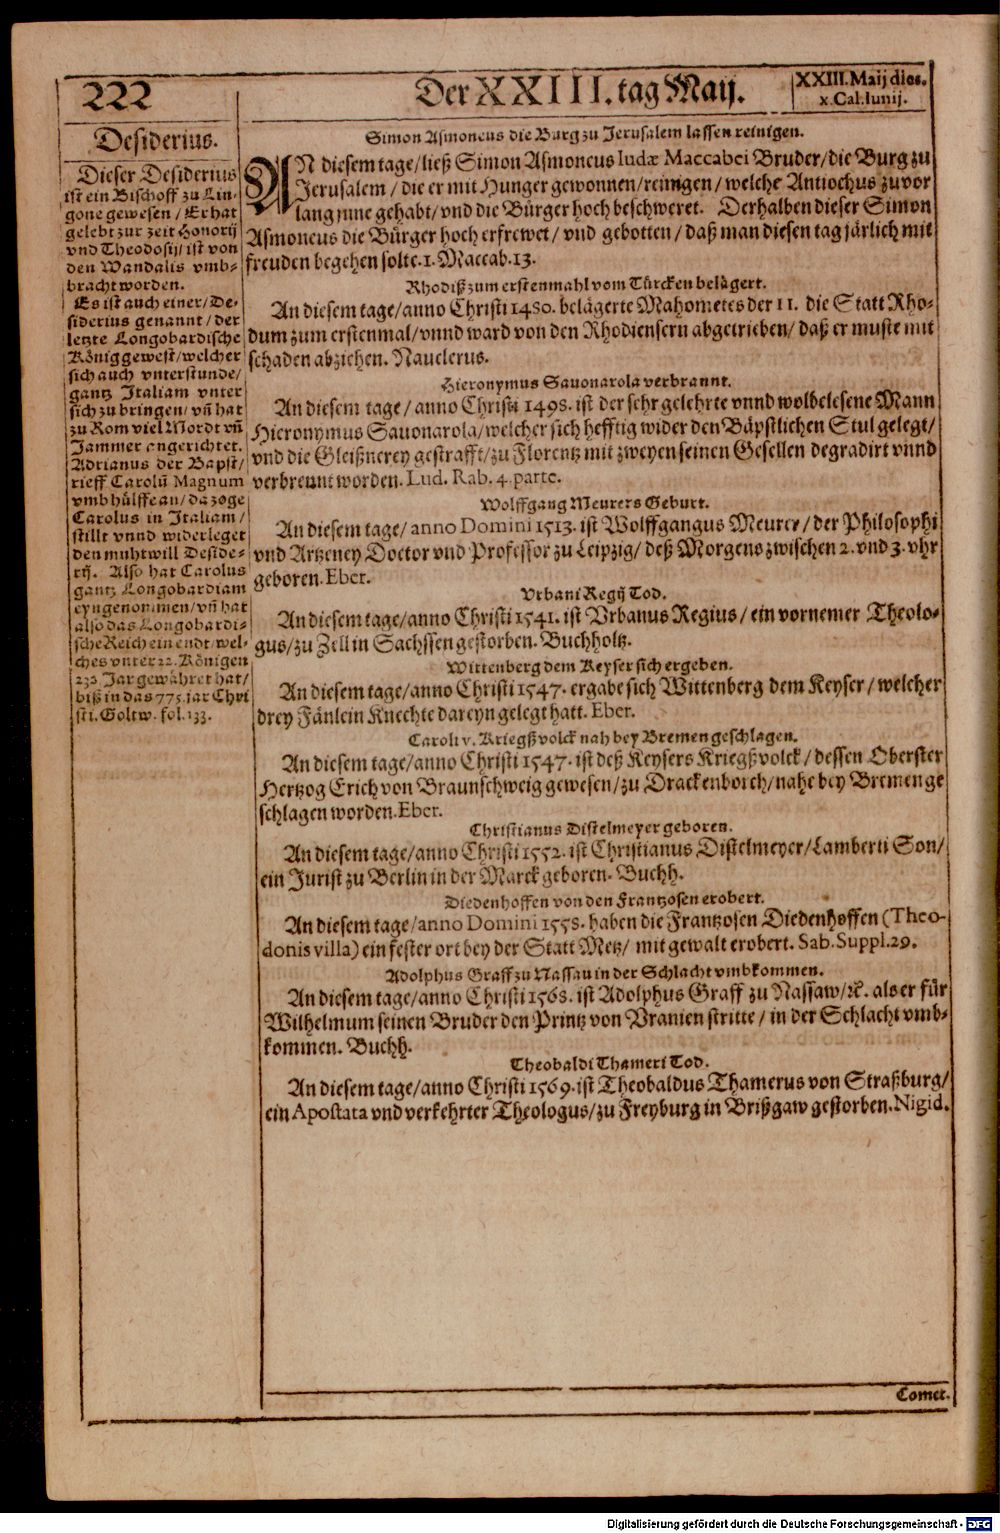 222
Der XXIII. tag Maij.
XXIII. Maij dies.
x. Cal. Iunij.
Desiderius.
Dieser Desiderius
ist ein Bischoff zu Lin-
gone gewesen / Er hat
gelebt zur zeit Honorij
vnd Theodosij / ist von
den Wandalis vmb-
bracht worden.
Es ist auch einer / De-
siderius genannt / der
letzte Longobardische
König gewest / welcher
sich auch vnterstunde /
gantz Italiam vnter
sich zu bringen / vñ hat
zu Rom viel Mordt vñ
Jammer angerichtet.
Adrianus der Bapst /
rieff Carolũ Magnum
vmb hülffe an / da zoge
Carolus in Italiam /
stillt vnnd widerleget
den muhtwill Deside-
rij. Also hat Carolus
gantz Longobardiam
eyngenommen / vñ hat
also das Longobardi-
sche Reich ein endt / wel-
ches vnter 22. Königen
232 Jar gewähret hat /
biß in das 775. jar Chri
sti. Goltw. fol. 133.
Simon Asmoneus die Burg zu Jerusalem lassen reinigen.
AN diesem tage / ließ Simon Asmoneus Iudæ Maccabei Bruder / die Burg zu
Jerusalem / die er mit Hunger gewonnen / reinigen / welche Antiochus zuvor
lang inne gehabt / vnd die Bürger hoch beschweret. Derhalben dieser Simon
Asmoneus die Bürger hoch erfrewet / vnd gebotten / daß man diesen tag järlich mit
freuden begehen solte. 1. Maccab. 13.
Rhodiß zum erstenmahl vom Türcken belägert.
An diesem tage / anno Christi 1480. belägerte Mahometes der 11. die Statt Rho-
dum zum erstenmal / vnnd ward von den Rhodiensern abgetrieben / daß er muste mit
schaden abziehen. Nauclerus.
Hieronymus Sauonarola verbrannt.
An diesem tage / anno Christi 1498. ist der sehr gelehrte vnnd wolbelesene Mann
Hieronymus Sauonarola / welcher sich hefftig wider den Bäpstlichen Stul gelegt /
vnd die Gleißnerey gestrafft / zu Florentz mit zweyen seinen Gesellen degradirt vnnd
verbrennt worden. Lud. Rab. 4. parte.
Wolffgang Meurers Geburt.
An diesem tage / anno Domini 1513. ist Wolffgangus Meurer / der Philosophi
vnd Artzeney Doctor vnd Professor zu Leipzig / deß Morgens zwischen 2. vnd 3. vhr
geboren. Eber.
Vrbani Regij Tod.
An diesem tage / anno Christi 1541. ist Vrbanus Regius / ein vornemer Theolo-
gus / zu Zell in Sachssen gestorben. Buchholtz.
Wittenberg dem Keyser sich ergeben.
An diesem tage / anno Christi 1547. ergabe sich Wittenberg dem Keyser / welcher
drey Fänlein Knechte dareyn gelegt hatt. Eber.
Caroli v. Kriegßvolck nah bey Bremen geschlagen.
An diesem tage / anno Christi 1547. ist deß Keysers Kriegßvolck / dessen Oberster
Hertzog Erich von Braunschweig gewesen / zu Drackenborch / nahe bey Bremen ge
schlagen worden. Eber.
Christianus Distelmeyer geboren.
An diesem tage / anno Christi 1552. ist Christianus Distelmeyer / Lamberti Son /
ein Jurist zu Berlin in der Marck geboren. Buchh.
Diedenhoffen von den Frantzosen erobert.
An diesem tage / anno Domini 1558. haben die Frantzosen Diedenhoffen (Theo-
donis villa) ein fester ort bey der Statt Metz / mit gewalt erobert. Sab. Suppl. 29.
Adolphus Graff zu Nassau in der Schlacht vmbkommen.
An diesem tage / anno Christi 1568. ist Adolphus Graff zu Nassaw / ꝛc. als er für
Wilhelmum seinen Bruder den Printz von Vranien stritte / in der Schlacht vmb-
kommen. Buchh.
Theobaldi Thameri Tod.
An diesem tage / anno Christi 1569. ist Theobaldus Thamerus von Straßburg /
ein Apostata vnd verkehrter Theologus / zu Freyburg in Brißgaw gestorben. Nigid.
Comet.
Digitalisierung gefördert durch die Deutsche Forschungsgemeinschaft - DFG